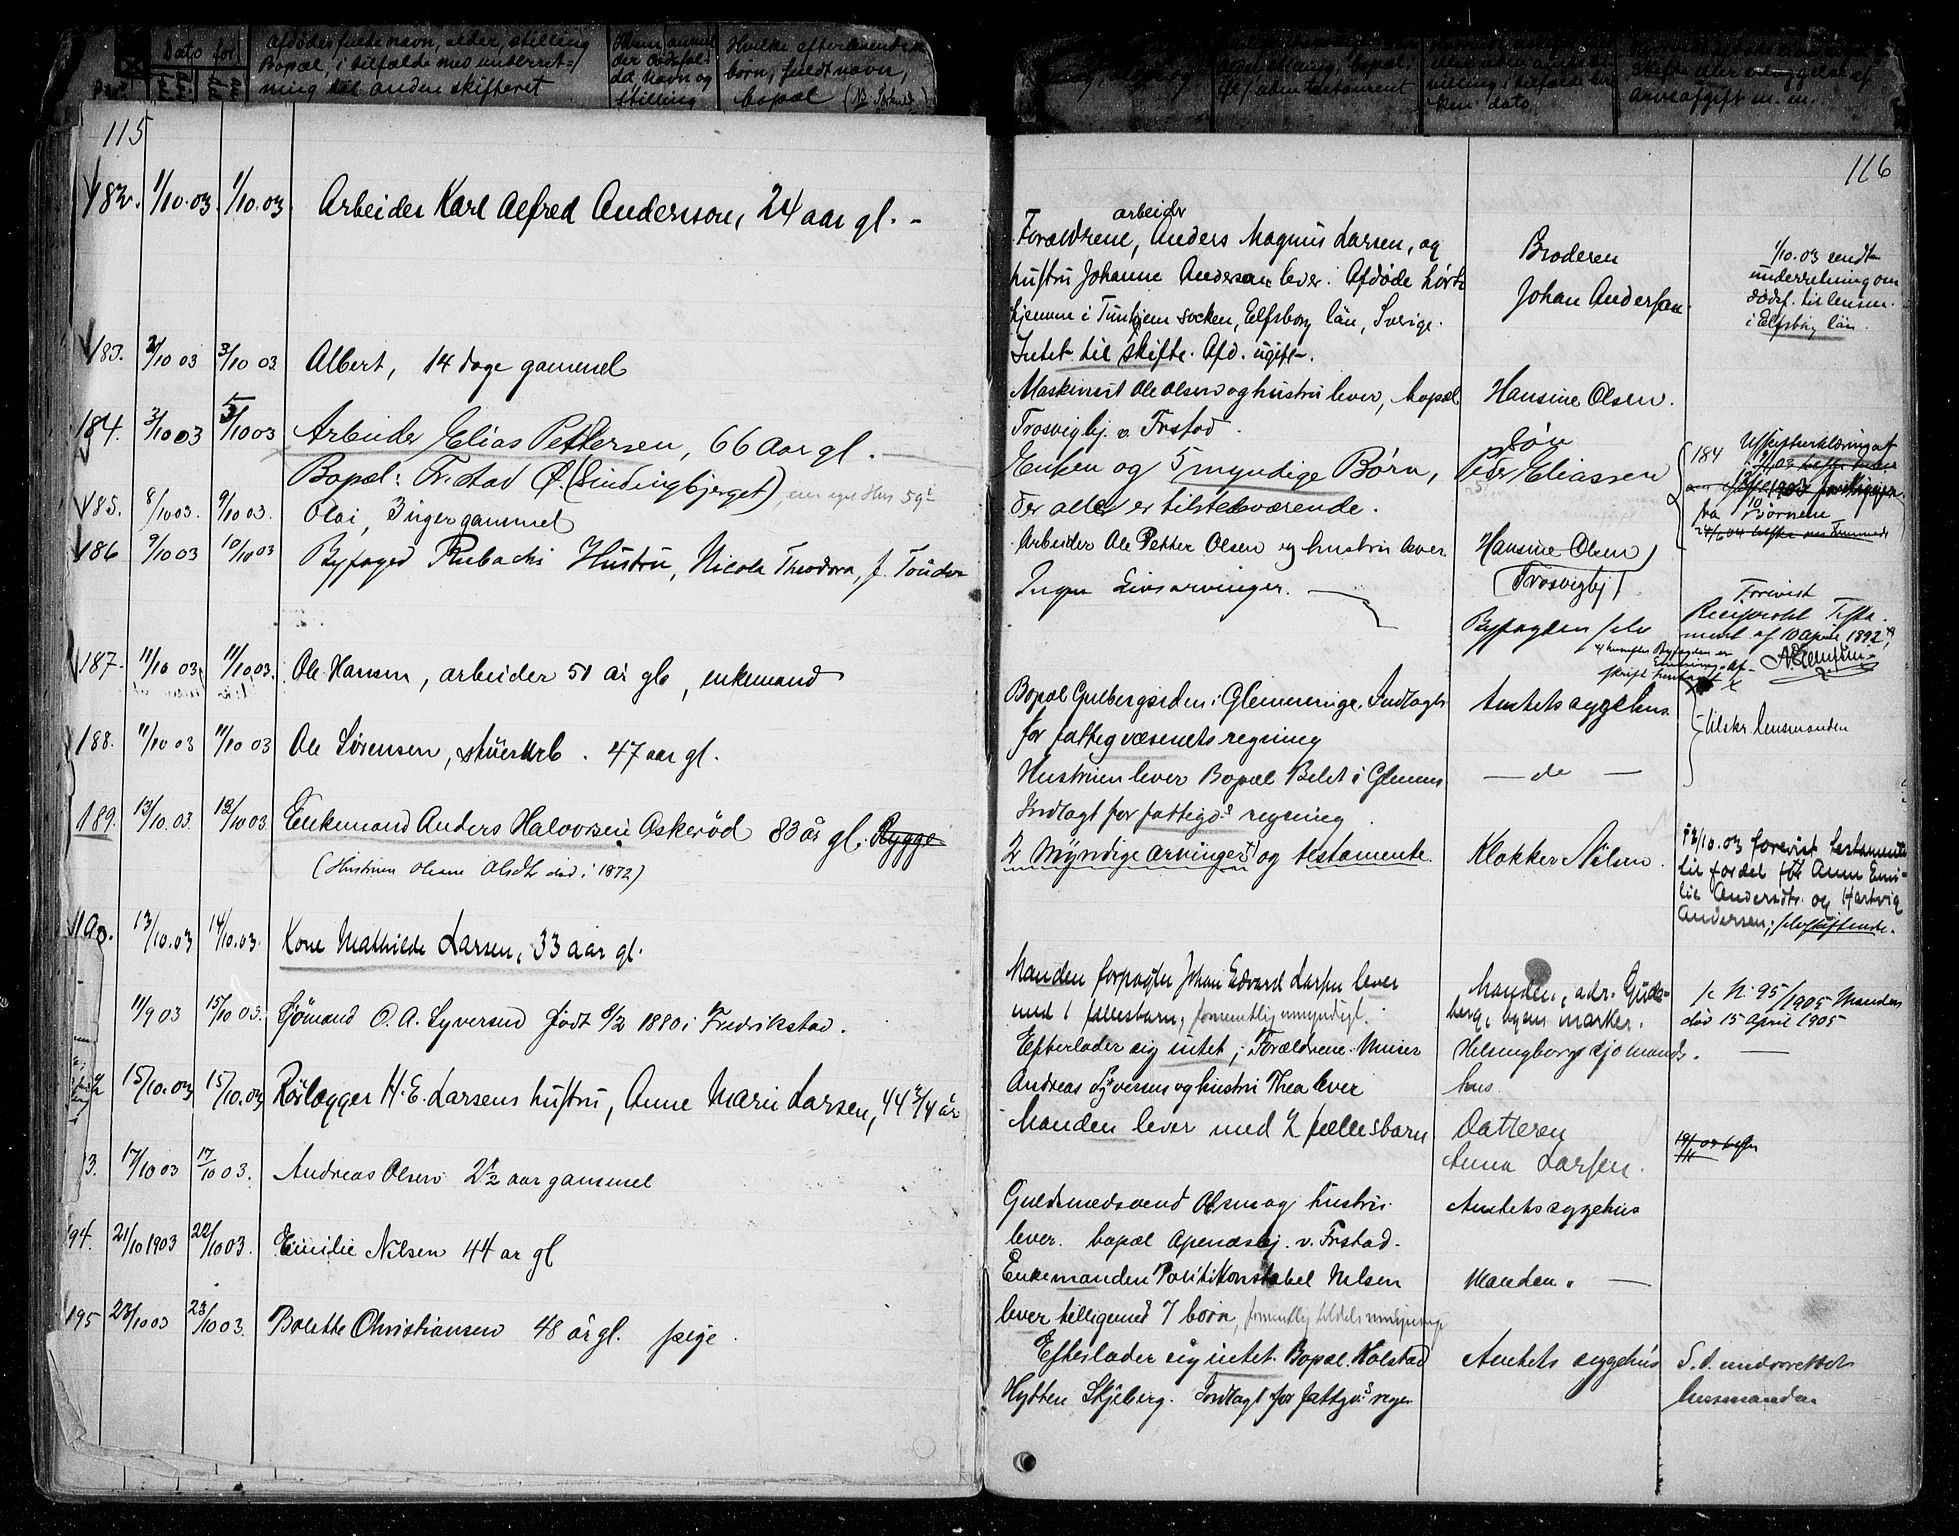 Dato for
afdødes fulde navn, alder, stilling
Bopæl, i tilfælde med underret-
ning til anden skifteret
stilling
Hvilke efterlevende
børn, fuldt navn,
bopæl
arveafgift m. m.
115
182. 1/10.03 1/10.03. Arbeider Karl Alfred Anderson, 24 aar gl. -
183. 2/10 03 3/10 03. Albert, 14 dage gammel
184. 3/10 03 5/10 03 Arbeider Elias Pettersen, 66 aar gl.
Bopæl: Fr.stad Ø. (Lindingbjerget)
185. 8/10 03. 9/10 03. Olai, 3 uger gammel
186 9/10 03 10/10 03 Byfoged Rubachs Hustru, Nicola Theodora, f. Tonder
187. 11/10 03. 11/10 03. Ole Hansen, arbeider 51 år gl, enkemand
188. 11/10 03 11/10 03 Ole Sørensen, stuert. 47 aar gl.
189. 13/10.03. 13/10 03. Enkemand Anders Halvorsen Askerød 83 år gl. Rygge
(Hustruen Oleane Olsdtr død i 1872)
190. 13/10.03 14/10.03. Kone Mathilde Larsen, 33 aar gl.
11/9 03 15/10 03. Sjömand O. A. Syversen født 6/2 1880 i Fredrikstad.
15/10.03 15/10.03 Rörlægger H. E. Larsens hustru, Anne Marie Larsen, 44 3/4 år
3. 17/10 03 17/10 03. Andreas Olsen 2 1/2 aar gammel
194. 21/10 1903 22/10 03. Emilie Nilsen 44 ar gl
195 23/10 03 23/10 03. Bolette Christiansen 48 år gl. pige.
116
arbeider
Forældrene, Anders Magnus Larsen, og
hustru Johanne Anderson lever. Afdøde hørte
hjemme i Tunhjem socken, Elfsborg län, Sverige.
Intet til skifte. Afd. ugift.
Broderen
Johan Anderson.
1/10.03 sendt
underretning om
dødsf. til lensm.
i Elfsborg län.
Maskinist Ole Olsen og hustru lever, bopæl
Trosvigbj. v. Frstad.
Hansine Olsen.
Enken og 5 myndige Børn,
der alle er tilstedeværende.
Søn
Peder Eliassen
184
fra Børnene
Arbeider Ole Petter Olsen og hustru lever
Hansine Olsen
(Trosvigbj)
Ingen Livsarvinger.
Byfogden selv
Forevist
Reciprokt Testa-
ment af 10 april 1892
Bopæl Gulbergseden i Glemminge. Indlagt
for fattigvæsenets regning
Amtets sygehus.
tilskr. lensmanden
Hustruen lever Bopæl Belet i Glemm.
Indlagt for fattigv.s regning.
— do —
2 myndige arvinger og testamente.
Klokker Nilsen.
12/10.03 forevist testamente
til fordel for Anne Emi-
lie Andersdtr. og Hartvig
Andersen; selvskiftende.
Manden forpagter Johan Edvard Larsen lever
med 1 fællesbarn, formentlig umyndigt.
Manden, adr. Gude-
berg, byens marker.
1905 Manden
död 15 April 1905
Efterlader sig intet; Forældrene Murer
Andreas Syversen og hustru Thea lever
Helsingborgs sjömands-
hus.
Manden lever med 2 fællesbarn
Datteren
Anna Larsen.
Guldsmedsvend Olsen og hustru
lever. bopæl Apenæsbj. v. Frstad.
Amtets sygehus
Enkemanden Politikonstabel Nilsen
lever tilligemed 7 børn, formentlig tildels umyndige
Manden.
Efterlader sig intet. Bopæl Kolstad
Hytten Skjeberg. Indlagt for fattigv.s regn
Amtets sygehus
S. d. underrettet
lensmanden